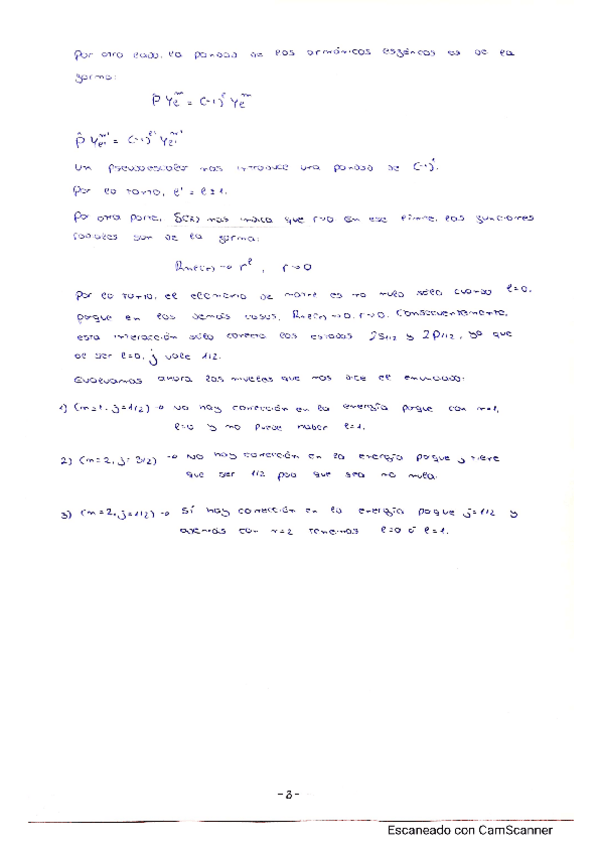 Por otro lado, la paridad de los armónicos esféricos es de la
forma:
P̂ Yₑᵐ = (-1)ˡ Yₑᵐ
P̂ Yₑ'ᵐ' = (-1)ˡ' Yₑ'ᵐ'
Un pseudoescalar nos introduce una paridad de (-1)ˡ.
Por lo tanto, l' = l ± 1.
Por otra parte, δ(r) nos indica que r→0. En ese límite, las funciones
radiales son de la forma:
Rnl(r) → rˡ , r→0
Por lo tanto, el elemento de matriz es no nulo sólo cuando l=0,
porque en los demás casos, Rnl(r)→0, r→0. Consecuentemente,
esta interacción sólo conecta los estados 2S1/2 y 2P1/2, ya que
de ser l=0, j vale 1/2.
Evaluamos ahora los niveles que nos dice el enunciado:
1) (n=1, j=1/2) → No hay corrección en la energía porque con n=1,
l=0 y no puede haber l=1.
2) (n=2, j=3/2) → No hay corrección en la energía porque j tiene
que ser 1/2 para que sea no nula.
3) (n=2, j=1/2) → Sí hay corrección en la energía porque j=1/2 y
además con n=2 tenemos l=0 ó l=1.
-3-
Escaneado con CamScanner